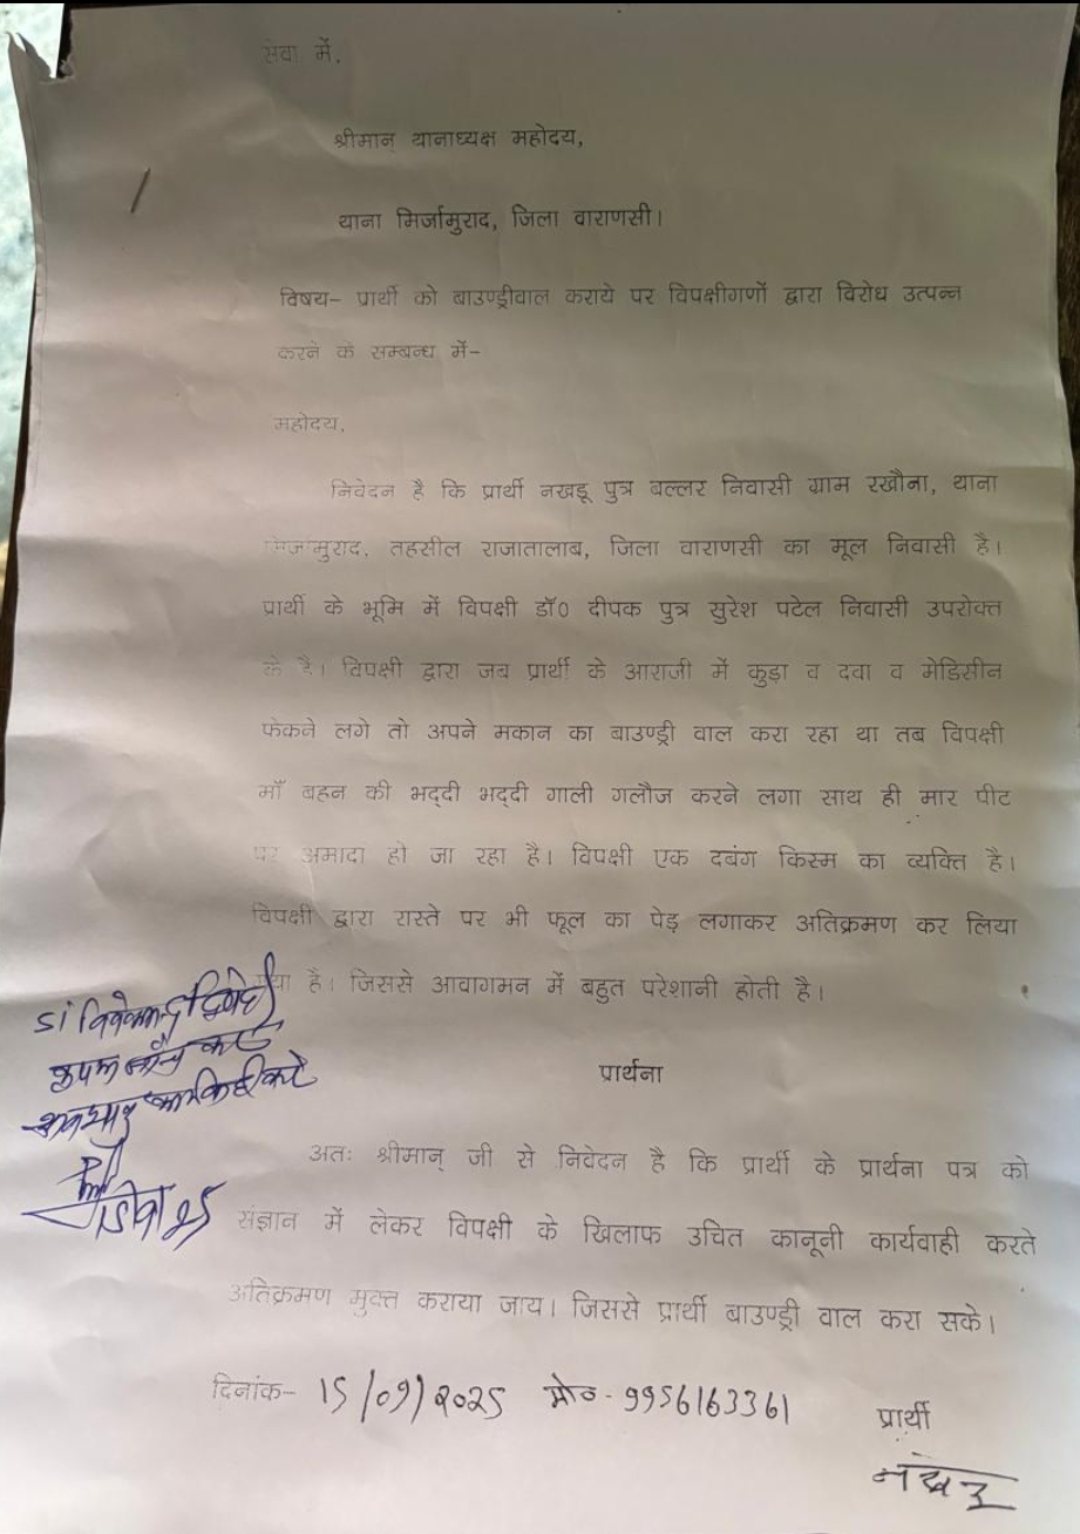 सेवा में,
श्रीमान् थानाध्यक्ष महोदय,
थाना मिर्जामुराद, जिला वाराणसी।
विषय– प्रार्थी को बाउण्ड्रीवाल कराये पर विपक्षीगणों द्वारा विरोध उत्पन्न
करने के सम्बन्ध में–
महोदय,
निवेदन है कि प्रार्थी नखडू पुत्र बल्लर निवासी ग्राम रखौना, थाना
मिर्जामुराद, तहसील राजातालाब, जिला वाराणसी का मूल निवासी है।
प्रार्थी के भूमि में विपक्षी डॉ0 दीपक पुत्र सुरेश पटेल निवासी उपरोक्त
के है। विपक्षी द्वारा जब प्रार्थी के आराजी में कुड़ा व दवा व मेडिसीन
फेकने लगे तो अपने मकान का बाउण्ड्री वाल करा रहा था तब विपक्षी
माँ बहन की भद्दी भद्दी गाली गलौज करने लगा साथ ही मार पीट
पर अमादा हो जा रहा है। विपक्षी एक दबंग किस्म का व्यक्ति है।
विपक्षी द्वारा रास्ते पर भी फूल का पेड़ लगाकर अतिक्रमण कर लिया
गया है। जिससे आवागमन में बहुत परेशानी होती है।
SI
प्रार्थना
अतः श्रीमान् जी से निवेदन है कि प्रार्थी के प्रार्थना पत्र को
संज्ञान में लेकर विपक्षी के खिलाफ उचित कानूनी कार्यवाही करते
अतिक्रमण मुक्त कराया जाय। जिससे प्रार्थी बाउण्ड्री वाल करा सके।
दिनांक– 15/09/2025 मो०- 9956163361
प्रार्थी
नखडू